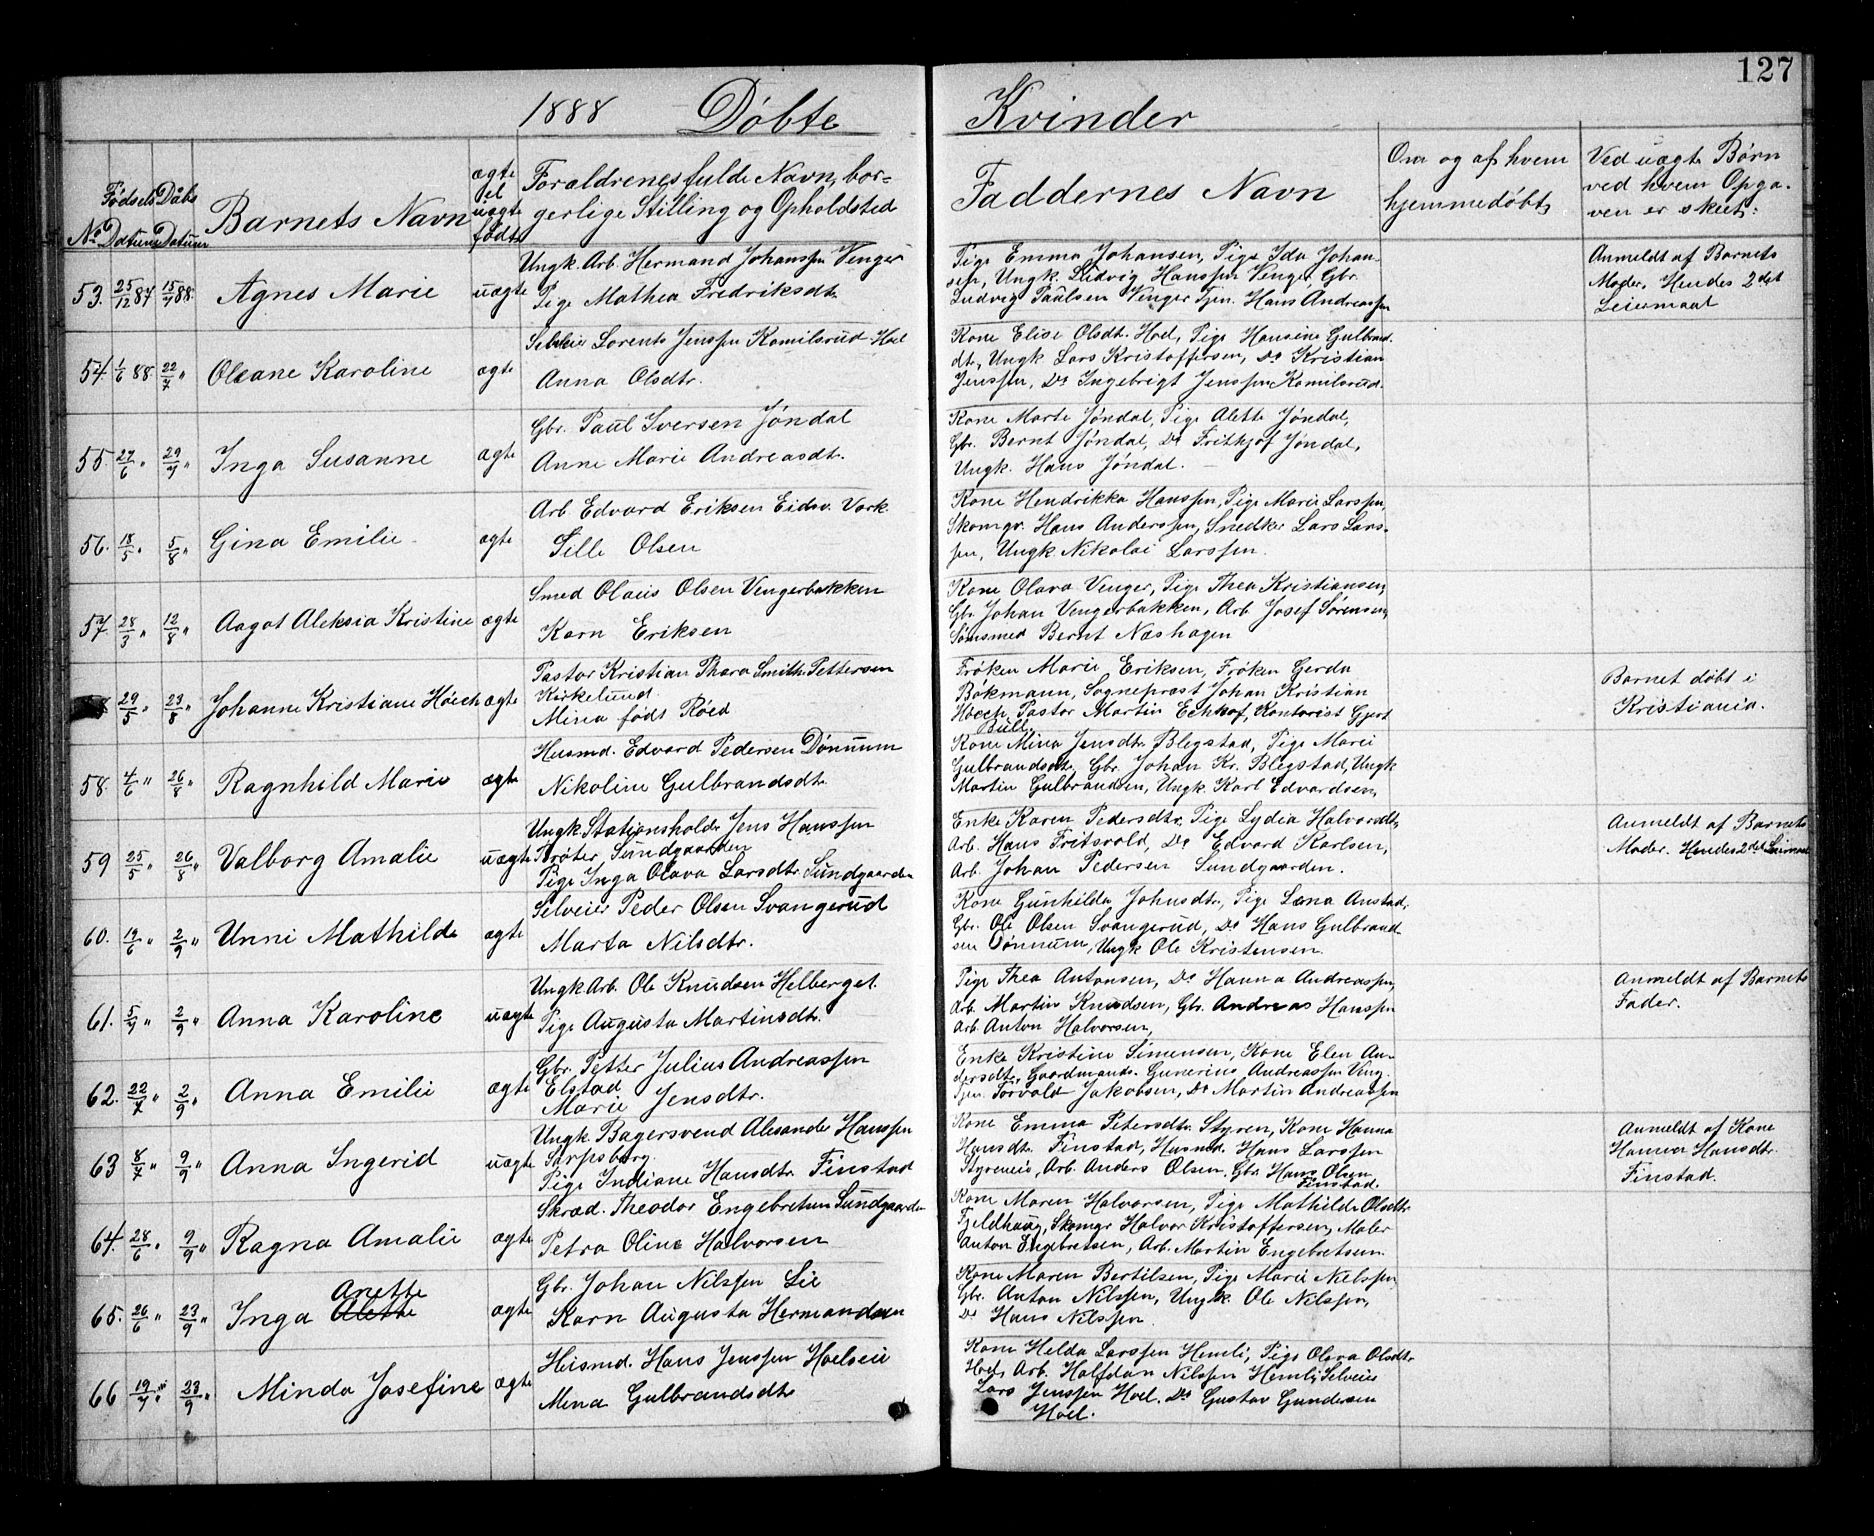 127
1888 Döbte Kvinder
No Fødsels Datum Dåbs Datum Barnets Navn ægte el uægte født Forældrenes fulde Navn, bor-
gerlige Stilling og Opholdsted
Faddernes Navn
Om og af hvem
hjemmedøbt
Ved uægte Børn
ved hvem Opga-
ven er skeet:
53. 25/12 87 15/7 88. Agnes Marie uægte
Ungk. Arb. Hermand Johanssen Venger
Pige Mathea Fredriksdt.
Pige Emma Johansen, Pige Ida Johan-
sen, Ungk. Ludvig Hanssen Venger, Gbr.
Ludvig Paulsen Venger Tjen. Hans Andreassen
Anmeldt af Barnets
Moder. Hendes 2det
Leiermaal
54. 1/6 88. 22/7 " Oleane Karoline ægte
Selveier Lorents Jenssen Komilsrud Hoel
Anna Olsdtr.
Kone Elise Olsdt. Hoel, Pige Hansine Gulbrand
dt., Ungk Lars Kristoffersen, Do Kristian
Jenssen, Do Ingebrigt Jenssen Komilsrud.
55. 27/6 " 29/7 " Inga Susanne ægte
Gbr. Paul Iversen Jøndal
Anne Marie Andreasdt.
Kone Marte Jøndal, Pige Alette Jøndal,
Gbr. Bernt Jøndal, Do Frithjof Jøndal,
Ungk. Hans Jøndal.
56. 18/5 " 5/8 " Gina Emilie ægte
Arb Edvard Eriksen Eidsv. Værk
Sille Olsen
Kone Hendrikka Hanssen, Pige Marie Larssen,
Skomgr. Hans Anderssen, Snedker Lars Lars-
sen, Ungk. Nikolai Larssen.
57. 28/3 " 12/8 " Aagot Aleksia Kristine ægte
Smed Olaus Olsen Vengerbakken
Karn Eriksen
Kone Olava Venger, Pige Thea Kristiansen,
Gbr Johan Vengerbakken, Arb Josef Sørensen,
Sømsmed Bernt Næshagen
29/5 " 23/8 " Johanne Kristiane Høech ægte
Pastor Kristian Thara Smith Pettersen
Kirkelund
Mina født Røed
Frøken Marie Eriksen, Frøken Gerda
Bøkmann, Sogneprest Johan Kristian
Høech Pastor Martin Eckhof, Kontorist Gjert
Bull,
Barnet døbt i
Kristiania.
58. 4/6 " 26/8 " Ragnhild Marie ægte
Husmd. Edvard Pedersen Dønnum
Nikoline Gulbrandsdt.
Kone Mina Jensdtr. Blegstad, Pige Marie
Gulbrandsdt, Gbr. Johan Kr. Blegstad, Ungk
Martin Gulbrandsen, Ungk. Karl Edvardsen,
59 25/5 " 26/8 " Valborg Amalie uægte
Ungk Stationsholdr Jens Hanssen
Trøter, Sundgaarden
Pige Inga Olava Larsdtr. Sundgaarden
Enke Karen Pedersdtr. Pige Lydia Halvorsdt,
Arb. Hans Fritsvold, Do Edvard Karlsen,
Arb. Johan Pedersen Sundgaarden.
Anmeldt af Barnets
Moder. Hendes 2det Leiermaal
60. 19/6 " 2/9 " Unni Mathilde ægte
Selveier Peder Olsen Svangerud
Marta Nilsdtr.
Kone Gunhilda Johnsdtr., Pige Lena Anstad,
Gbr. Ole Olsen Svangerud, Do Hans Gulbrand
sen Dønnum, Ungk Ole Kristensen.
61. 5/7 " 2/9 " Anna Karoline uægte
Ungk Arb. Ole Knudsen Helberget.
Pige Augusta Martinsdtr.
Pige Thea Antonsen, Do Hanna Andreassen,
Arb. Martin Knudsen, Gbr. Andreas Hanssen
Arb. Anton Halvorsen,
Anmeldt af Barnets
Fader.
62. 22/7 " 2/9 " Anna Emilie ægte
Gbr. Petter Julius Andreassen
Elstad
Marie Jensdtr.
Enke Kristine Simensen, Kone Elen An-
dersdtr, Gaardmands. Gunerius Andreassen Veng.
Tjen. Torvald Jakobsen, Do Martin Andreassen
63 8/7 " 9/9 " Anna Ingerid uægte
Ungk Bagersvend Alexander Hanssen
Sarpsborg.
Pige Indiane Hansdtr. Finstad
Kone Emma Petersdtr Styren, Kone Hanna
Hansdt. Finstad, Husmd. Hans Larssen
Styreneie, Arb. Anders Olsen, Gbr Hans Olsen
Finstad.
Anmeldt af Kone
Hanna Hansdtr.
Finstad.
64. 28/6 " 9/9 " Ragna Amalie ægte
Skræd. Theodor Engebretsen Sundgaarden
Petra Oline Halvorsen
Kone Maren Halvorsen, Pige Mathilde Olsdtr
Fjeldhaug, Skomgr Halvor Kristoffersen, Maler
Anton Engebretsen, Arb. Martin Engebretsen.
65. 26/6 " 23/9 " Inga Alette Anette ægte
Gbr. Johan Nilssen Lie
Karn Augusta Hermandsen
Kone Maren Bertilsen, Pige Marie Nielssen
Gbr. Anton Nilssen, Ungk. Ole Nilssen,
Do Hans Nilssen.
66 19/7 " 23/9 " Minda Josefine ægte
Husmd. Hans Jenssen Hoelseie
Mina Gulbrandsdt.
Kone Helda Larssen Hemli, Pige Olava Olsdtr
Hoel, Arb. Halfdan Nilssen Hemli, Selveier
Lars Jenssen Hoel. Do Gustav Gundersen
Hoel.